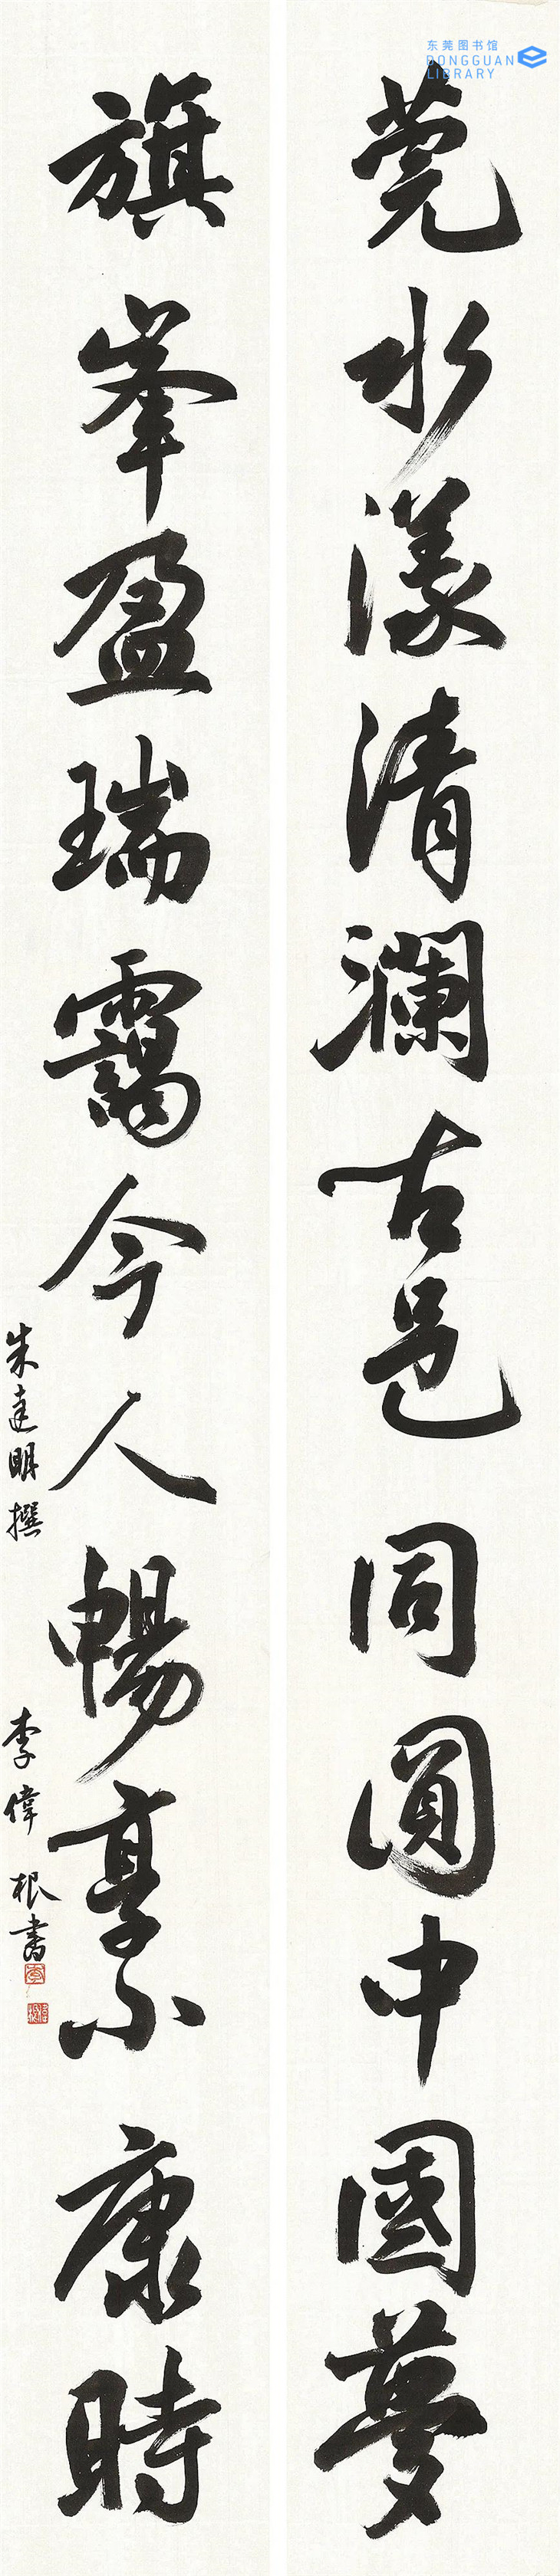 东莞图书馆
DONGGUAN
LIBRARY
莞水漾清澜古邑同圓中國夢
旗峯盈瑞靄今人暢享小康時
朱達明撰
李偉根書